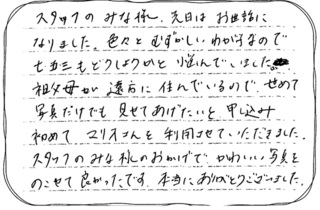 スタッフのみな様、先日はお世話に
なりました。色々とむずかしいわが子なので
七五三もどうしようかと悩んでいました。
祖父母が遠方に住んでいるので せめて
写真だけでも見せてあげたいと申し込み
初めて マリオさんを利用させていただきました。
スタッフのみな様のおかげで かわいい写真を
のこせて良かったです。本当にありがとうございました。